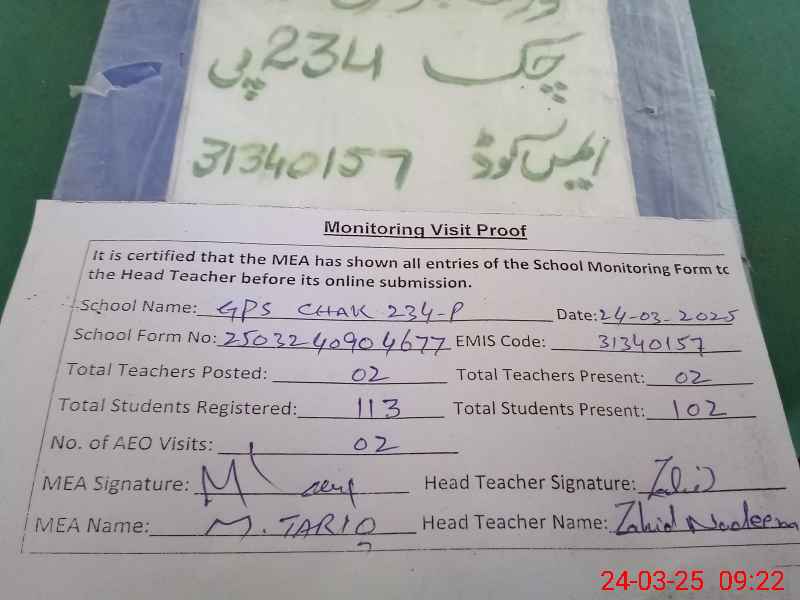 چک 234 پی
ایمس کوڈ 31340157
Monitoring Visit Proof
It is certified that the MEA has shown all entries of the School Monitoring Form to
the Head Teacher before its online submission.
School Name: GPS CHAK 234-P Date: 24-03-2025
School Form No: 2503240904677 EMIS Code: 31340157
Total Teachers Posted: 02 Total Teachers Present: 02
Total Students Registered: 113 Total Students Present: 102
No. of AEO Visits: 02
MEA Signature: Head Teacher Signature: Zahid
MEA Name: M. TARIQ Head Teacher Name: Zahid Nadeem
24-03-25 09:22